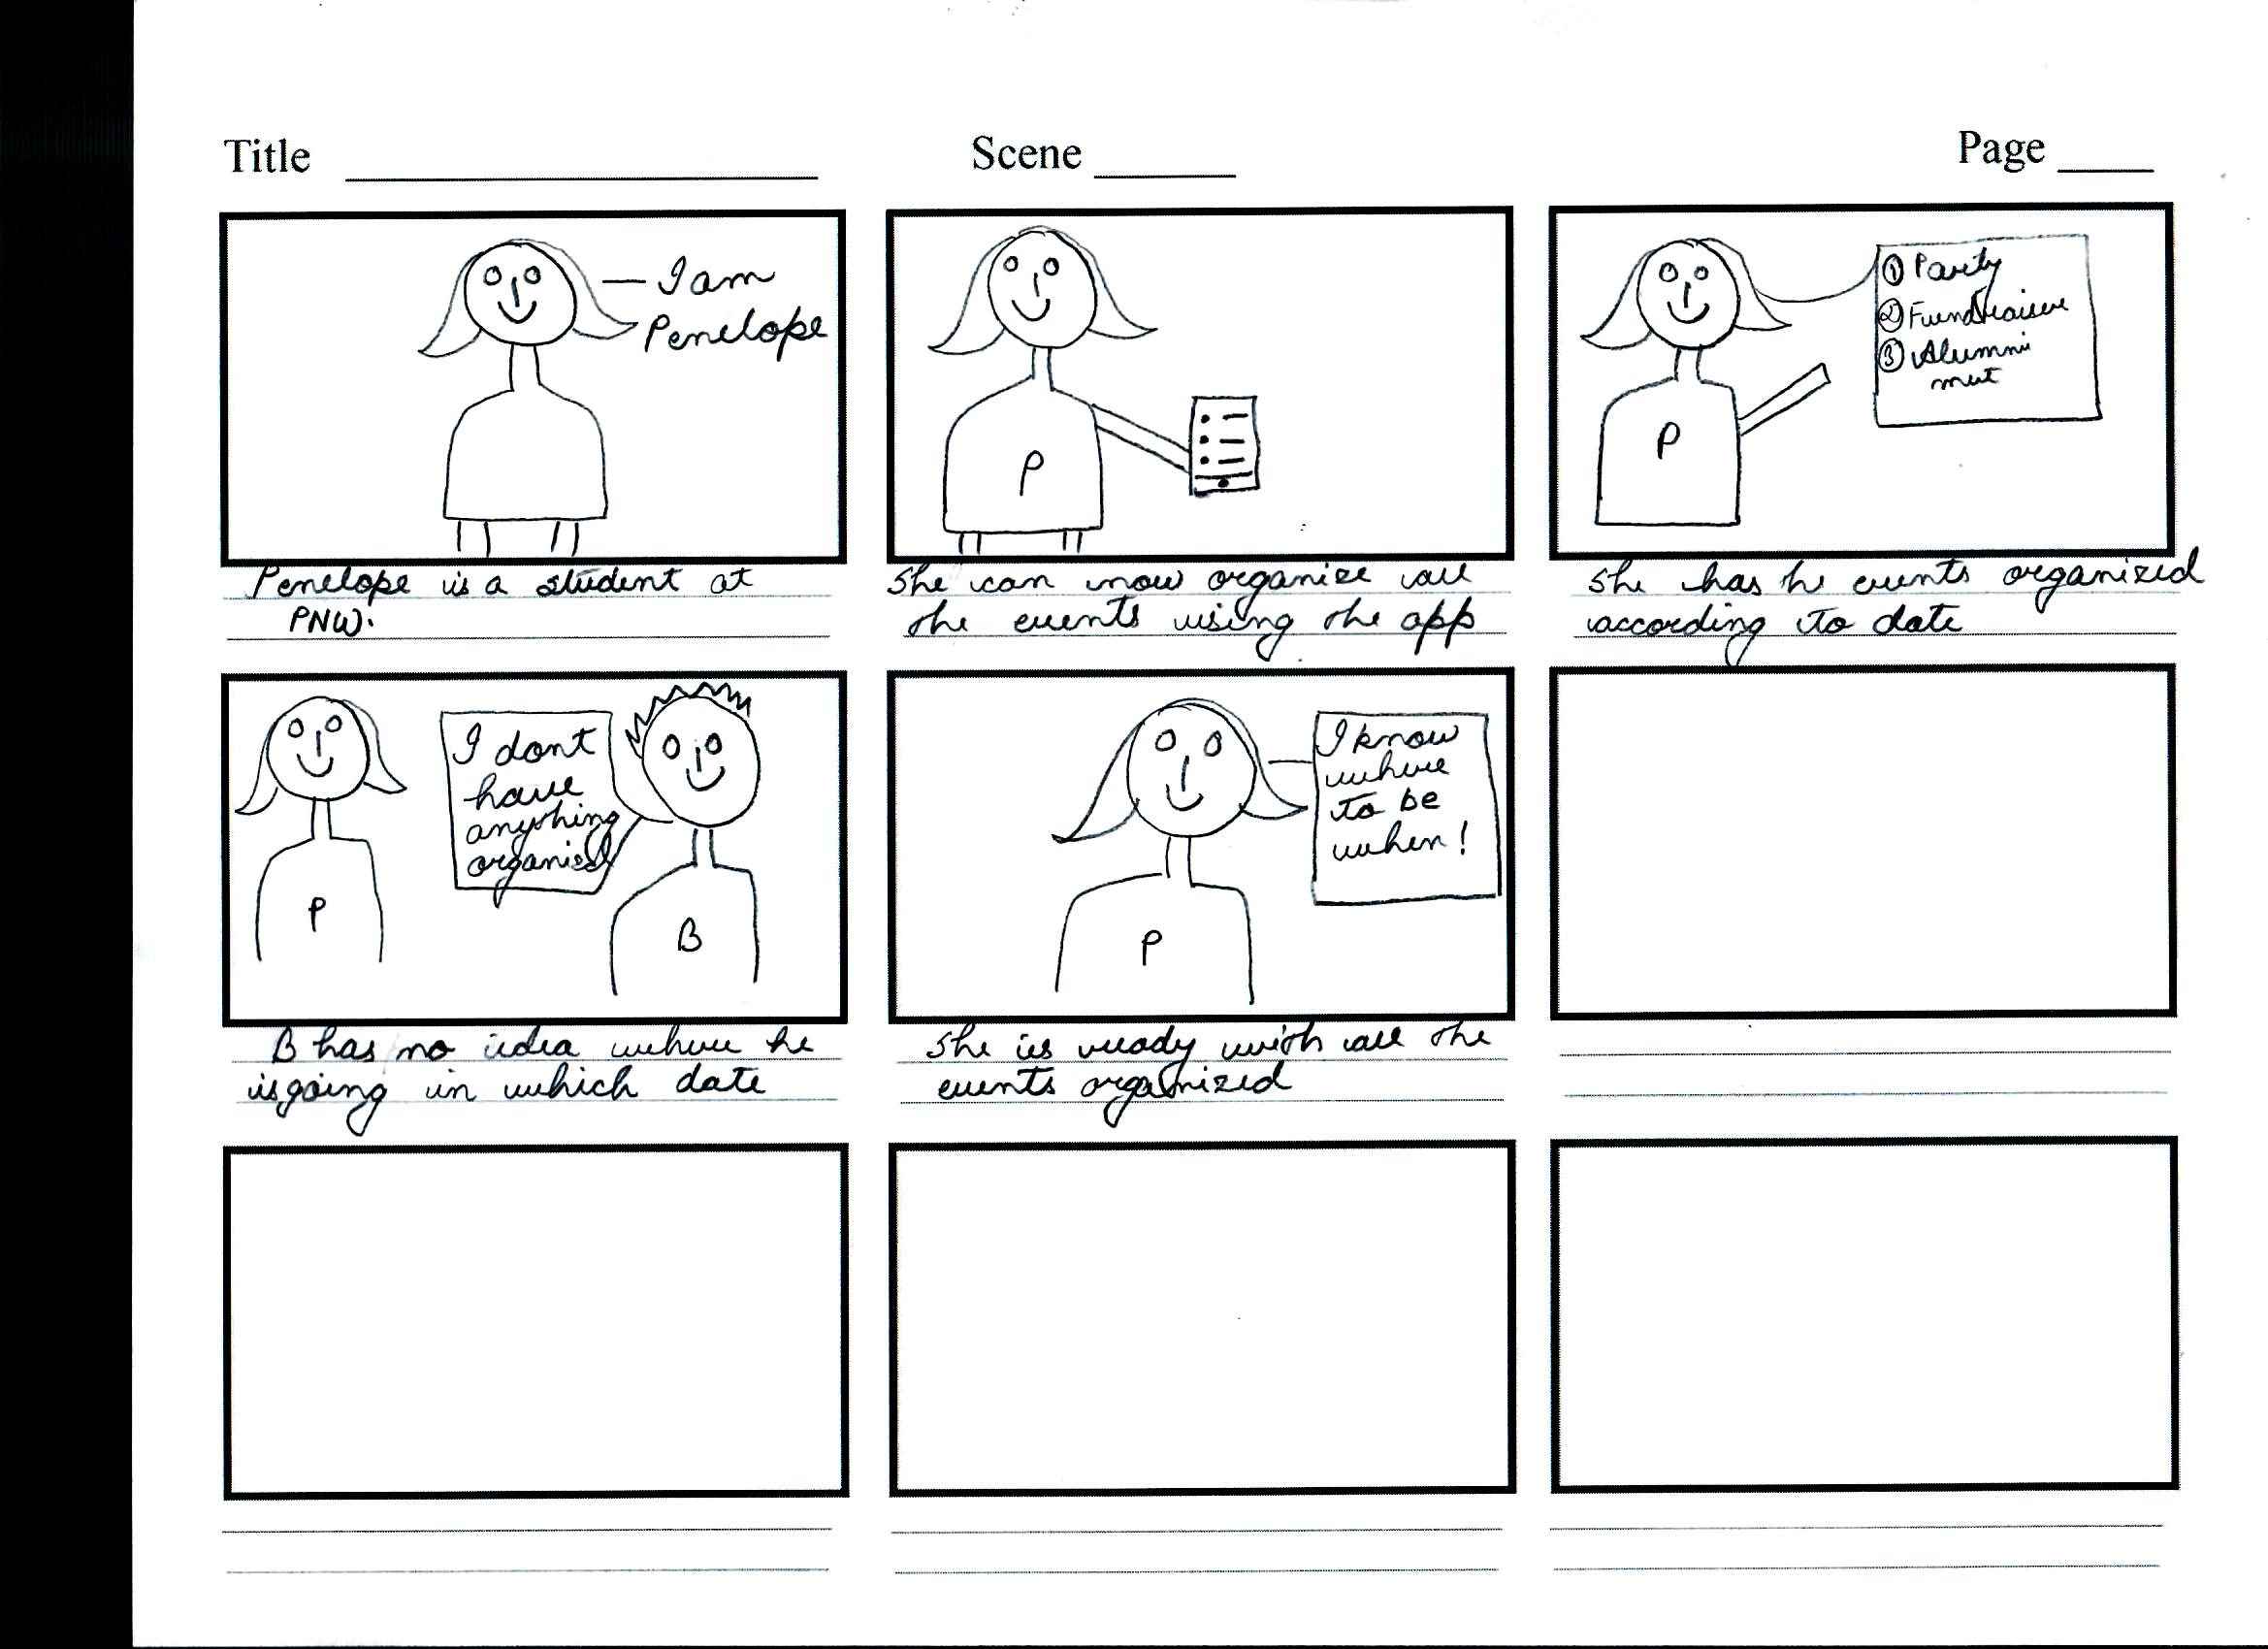 Title
Scene
Page
— I am
Penelope
Penelope is a student at
PNW.
P
She can now organize all
the events using the app
P
① Party
② Fundraiser
③ Alumni
meet
She has h events organized
according to date
P
I dont
have
anything
organised
B
B has no idea where he
is going in which date
P
I know
where
to be
when!
She is ready with all the
events organized